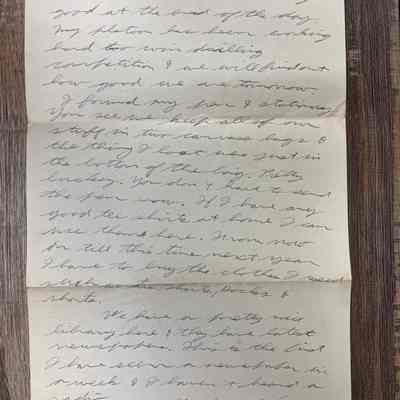 good at the end of the day.
My platoon has been working
hard too win drilling
competition & we will find out
how good we are tomorrow.
I found my pen & stationary.
You see we keep all of our
stuff in two canvas bags &
the thing I lost was just in
the bottom of the bag. Pretty
luckey. You don't have to send
the pen now. If I have any
good tee shirts at home I can
use them here. From now
on till this time next year
I have to buy the clothes I need
socks &
shorts.
We have a pretty nice
library here & they have latest
newspapers. This is the first
I have seen a newspaper in
a week & I haven't heard a
radio